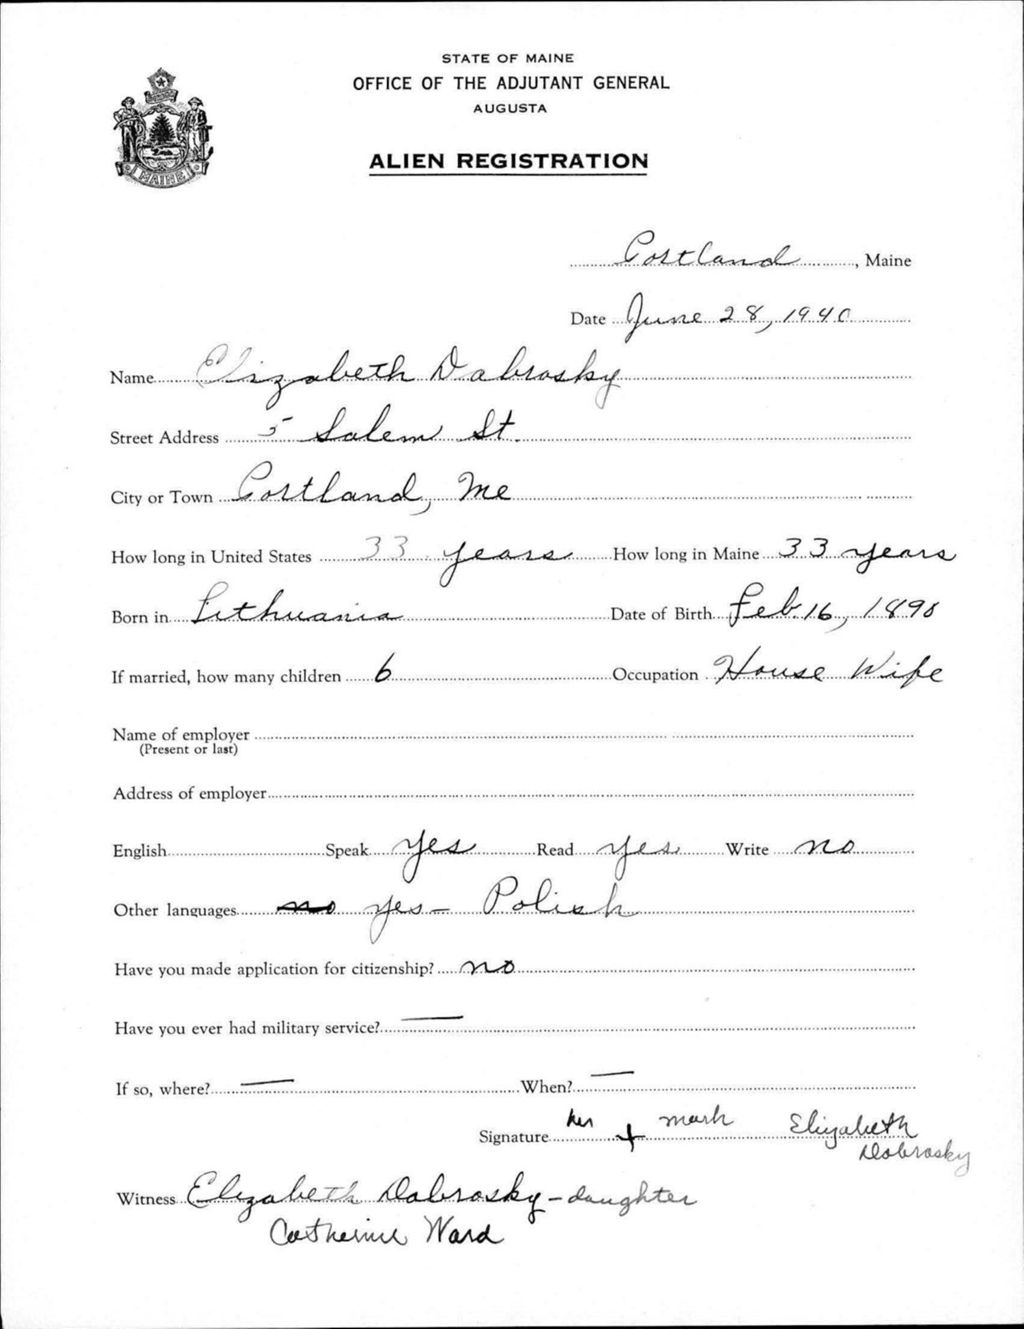 STATE OF MAINE
OFFICE OF THE ADJUTANT GENERAL
AUGUSTA
MAINE
ALIEN REGISTRATION
Portland, Maine
Date June 28, 1940
Name Elizabeth Dabrosky
Street Address 5 Salem St.
City or Town Portland, Me
How long in United States 33 years How long in Maine 33 years
Born in Lithuania Date of Birth Feb. 16, 1890
If married, how many children 6 Occupation House Wife
Name of employer
(Present or last)
Address of employer
English Speak yes Read yes Write no
Other languages no yes - Polish
Have you made application for citizenship? no
Have you ever had military service? —
If so, where? — When? —
Signature her + mark Elizabeth
Dobrosky
Witness Elizabeth Dabrosky - daughter
Catherine Ward